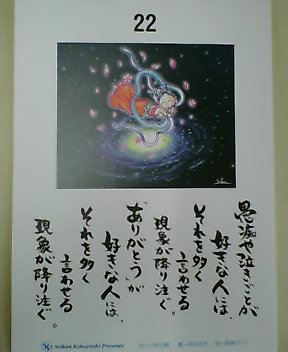 22
愚痴や泣きごとが
好きな人には、
それを多く
言わせる
現象が降り注ぐ。
「ありがとう」が
好きな人には、
それを多く
言わせる
現象が降り注ぐ。
Seikan Kobayashi Presents